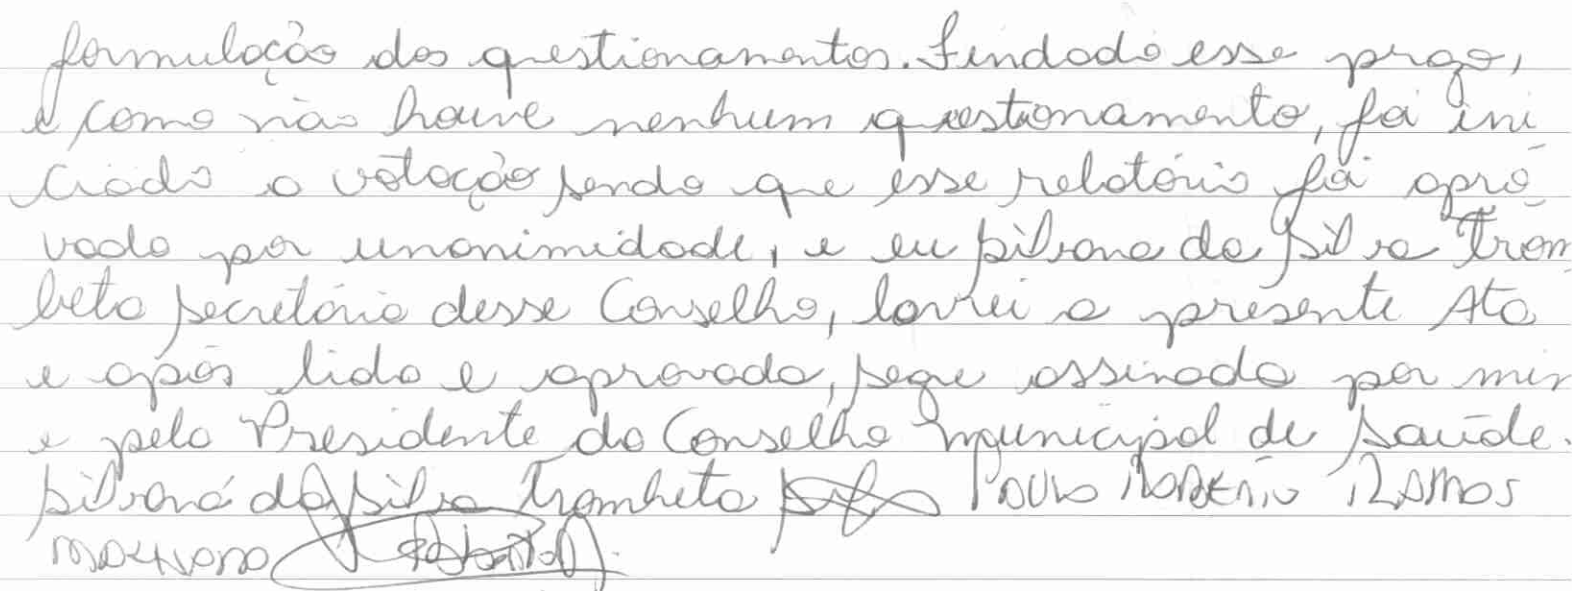 formulação dos questionamentos. Findado esse prazo,
e como não houve nenhum questionamento, foi ini
ciado a votação sendo que esse relatório foi apro
vado por unanimidade, e eu Silvana da Silva Trom
beta secretária desse Conselho, lavrei a presente Ata
e após lida e aprovada, segue assinada por mim
e pelo Presidente do Conselho Municipal de Saúde.
Silvana da Silva Trombeta Paulo Roberto Ramos